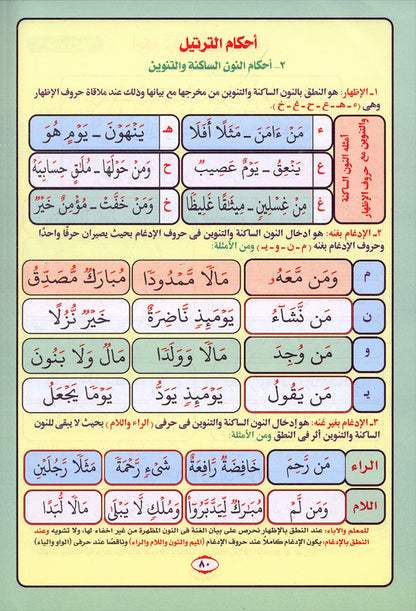 أحكام الترتيل
٢- أحكام النون الساكنة والتنوين
١- الإظهار: هو النطق بالنون الساكنة والتنوين من مخرجها مع بيانها وذلك عند ملاقاة حروف الإظهار
وهى (ء - هـ - ع - ح - غ - خ)
أمثلة النون الساكنة والتنوين مع حروف الإظهار
ء مَنْ ءَامَنَ - مَثَلًا أَفَلَا
هـ يَنْهَوْنَ - يَوْمٍ هُوَ
ع يَنْعِقُ - يَوْمٌ عَصِيبٌ
ح وَمَنْ حَوْلَهَا - مُلَٰقٍ حِسَابِيَهْ
غ مِنْ غِسْلِينٍ - مِيثَٰقًا غَلِيظًا
خ وَمَنْ خَفَّتْ - مُؤْمِنٌ خَيْرٌ
٢- الإدغام بغنه: هو ادخال النون الساكنة والتنوين فى حروف الإدغام بحيث يصيران حرفًا واحدًا
وحروف الإدغام بغنه (م - ن - و - يـ) ومن الأمثلة:
م وَمَن مَّعَهُۥ مَالًا مَّمْدُودًا مُبَارَكٌ مُّصَدِّقُ
ن مَن نَّشَآءُ يَوْمَئِذٍ نَّاضِرَةٌ خَيْرٌ نُّزُلًا
و مَن وُجِدَ مَالًا وَوَلَدًا مَالٌ وَلَا بَنُونَ
يـ مَن يَقُولُ يَوْمَئِذٍ يَوَدُّ يَوْمًا يَجْعَلُ
٣- الإدغام بغير غنه: هو إدخال النون الساكنة والتنوين فى حرفى (الراء واللام) بحيث لا يبقى للنون
الساكنة والتنوين أثر فى النطق ومن الأمثلة:
الراء مَن رَّحِمَ خَافِضَةٌ رَّافِعَةٌ شَىْءٍ رَّحْمَةً مَثَلًا رَّجُلَيْنِ
اللام وَمَن لَّمْ مُبَٰرَكٌ لِّيَدَّبَّرُوٓا۟ وَمُلْكٍ لَّا يَبْلَىٰ مَالًا لُّبَدًا
للمعلم والاباء: عند النطق بالإظهار نحرص على بيان الغنة فى النون المظهرة من غير اخفاء لها، ولا تشويه وعند
النطق بالإدغام: يكون الإدغام كاملاً عند حروف الإدغام (الميم والنون واللام والراء) وناقصًا عند حرفى (الواو والياء)
٨٠